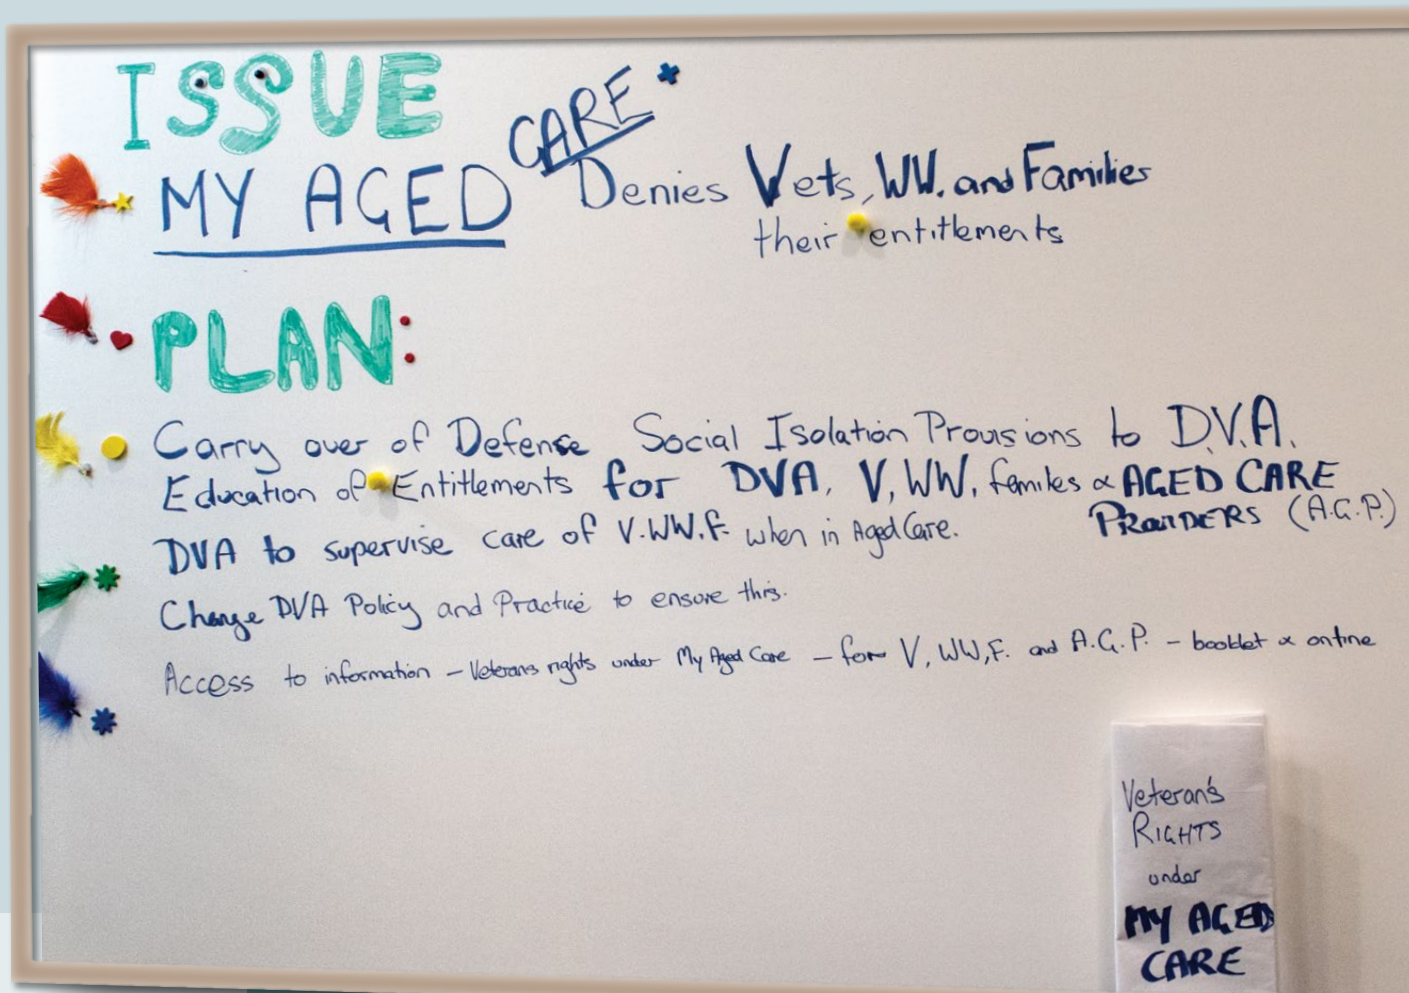 ISSUE
MY AGED CARE Denies Vets, WW. and Families
their entitlements
PLAN:
Carry over of Defense Social Isolation Provisions to D.V.A.
Education of Entitlements for DVA, V, WW, families & AGED CARE
PROVIDERS (A.C.P.)
DVA to supervise care of V.WW.F. when in Aged Care.
Change DVA Policy and Practice to ensure this.
Access to information – Veterans rights under My Aged Care – for V, WW, F. and A.C.P. – booklet & online
Veteran's
RIGHTS
under
MY AGED
CARE